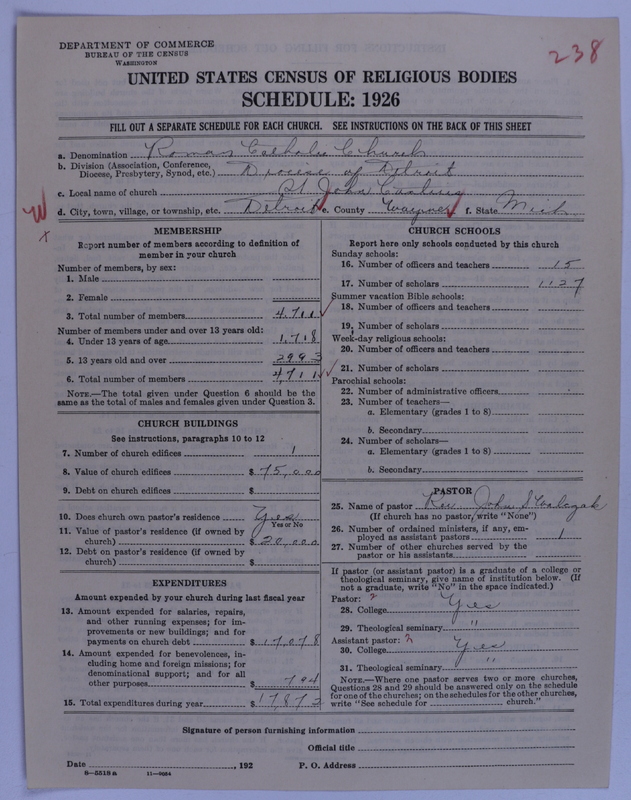 DEPARTMENT OF COMMERCE
BUREAU OF THE CENSUS
WASHINGTON
238
UNITED STATES CENSUS OF RELIGIOUS BODIES
SCHEDULE: 1926
FILL OUT A SEPARATE SCHEDULE FOR EACH CHURCH. SEE INSTRUCTIONS ON THE BACK OF THIS SHEET
a. Denomination Roman Catholic Church
b. Division (Association, Conference, Diocese, Presbytery, Synod, etc.) Diocese of Detroit
c. Local name of church St. John Cantius
d. City, town, village, or township, etc. Detroit e. County Wayne f. State Mich
W
x
MEMBERSHIP
Report number of members according to definition of member in your church
Number of members, by sex:
1. Male
2. Female
3. Total number of members 4,711
Number of members under and over 13 years old:
4. Under 13 years of age 1,718
5. 13 years old and over 2993
6. Total number of members 4,711
NOTE.—The total given under Question 6 should be same as the total of males and females given under Question 3.
CHURCH BUILDINGS
See instructions, paragraphs 10 to 12
7. Number of church edifices 1
8. Value of church edifices $ 75,000
9. Debt on church edifices $
10. Does church own pastor's residence Yes
Yes or No
11. Value of pastor's residence (if owned by church) $ 20,000
12. Debt on pastor's residence (if owned by church) $
EXPENDITURES
Amount expended by your church during last fiscal year
13. Amount expended for salaries, repairs, and other running expenses; for improvements or new buildings; and for payments on church debt $ 17,078
14. Amount expended for benevolences, including home and foreign missions; for denominational support; and for all other purposes $ 794
15. Total expenditures during year $ 17872
CHURCH SCHOOLS
Report here only schools conducted by this church
Sunday schools:
16. Number of officers and teachers 15
17. Number of scholars 1127
Summer vacation Bible schools:
18. Number of officers and teachers
19. Number of scholars
Week-day religious schools:
20. Number of officers and teachers
21. Number of scholars
Parochial schools:
22. Number of administrative officers
23. Number of teachers—
a. Elementary (grades 1 to 8)
b. Secondary
24. Number of scholars—
a. Elementary (grades 1 to 8)
b. Secondary
PASTOR
25. Name of pastor Rev. John S Walczak
(If church has no pastor, write "None")
26. Number of ordained ministers, if any, employed as assistant pastors 1
27. Number of other churches served by the pastor or his assistants
If pastor (or assistant pastor) is a graduate of a college or theological seminary, give name of institution below. (If not a graduate, write "No" in the space indicated.)
Pastor: ?
28. College Yes
29. Theological seminary "
Assistant pastor: ?
30. College Yes
31. Theological seminary "
NOTE.—Where one pastor serves two or more churches, Questions 28 and 29 should be answered only on the schedule for one of the churches; on the schedules for the other churches, write "See schedule for church."
Signature of person furnishing information
Official title
Date , 192 P. O. Address
8—5518a 11—9084